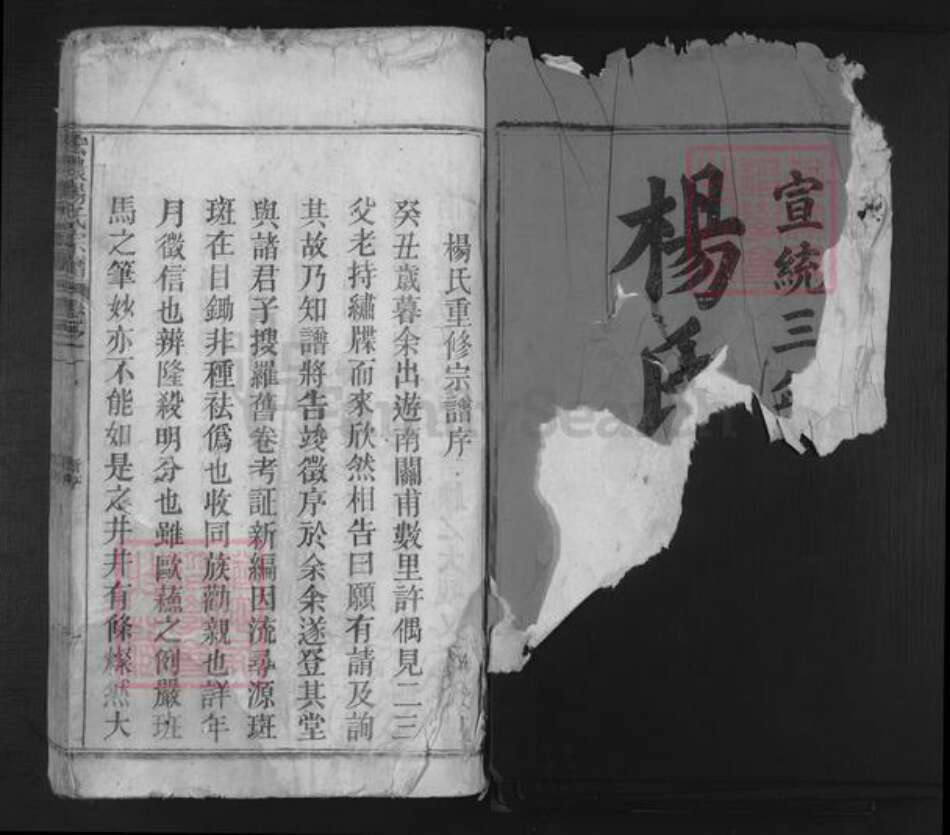 宣統三年
楊氏
楊氏重修宗譜序
癸丑歲暮余出遊南關甫數里許偶見二三
父老持繡牒而來欣然相告曰願有請及詢
其故乃知譜將告竣徵序於余余遂登其堂
與諸君子搜羅舊卷考証新編因流尋源斑
斑在目鋤非種祛僞也收同族勸親也詳年
月徵信也辨隆殺明分也雖歐蘓之例嚴班
馬之筆妙亦不能如是之井井有條燦然大